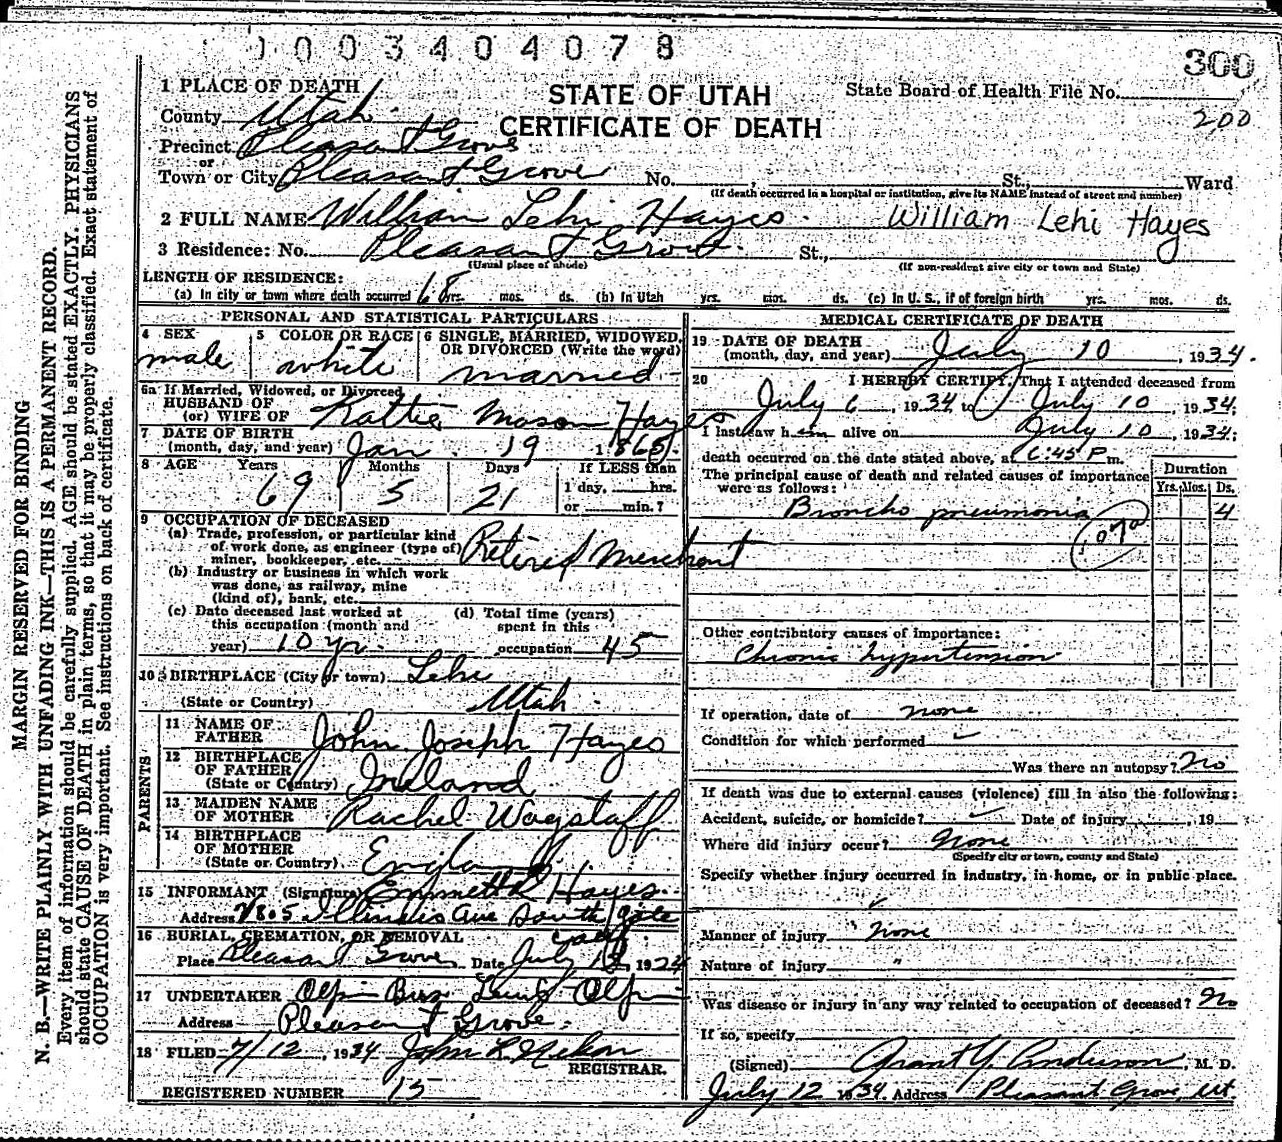 1 0 0 0 3 4 0 4 0 7 8
300
1 PLACE OF DEATH
STATE OF UTAH
CERTIFICATE OF DEATH
State Board of Health File No.
200
County Utah
Precinct Pleasant Grove
or
Town or City Pleasant Grove No. , St., Ward
(If death occurred in a hospital or institution, give its NAME instead of street and number)
2 FULL NAME William Lehi Hayes William Lehi Hayes
3 Residence: No. Pleasant Grove St.,
(Usual place of abode) (If non-resident give city or town and State)
LENGTH OF RESIDENCE:
(a) In city or town where death occurred 68 yrs. mos. ds. (b) In Utah yrs. mos. ds. (c) In U. S., if of foreign birth yrs. mos. ds.
PERSONAL AND STATISTICAL PARTICULARS
4 SEX
male
5 COLOR OR RACE
white
6 SINGLE, MARRIED, WIDOWED,
OR DIVORCED (Write the word)
married
6a If Married, Widowed, or Divorced
HUSBAND OF
(or) WIFE OF Kattie Mason Hayes
7 DATE OF BIRTH
(month, day, and year) Jan. 19 1865
8 AGE Years Months Days If LESS than
69 5 21 1 day, hrs.
or min.?
9 OCCUPATION OF DECEASED
(a) Trade, profession, or particular kind
of work done, as engineer (type of)
miner, bookkeeper, etc. Retired Merchant
(b) Industry or business in which work
was done, as railway, mine
(kind of), bank, etc.
(c) Date deceased last worked at
this occupation (month and
year) 10 yr.
(d) Total time (years)
spent in this
occupation 45
10 BIRTHPLACE (City or town) Lehi
(State or Country) Utah
PARENTS
11 NAME OF
FATHER John Joseph Hayes
12 BIRTHPLACE
OF FATHER
(State or Country) Ireland
13 MAIDEN NAME
OF MOTHER Rachel Wagstaff
14 BIRTHPLACE
OF MOTHER
(State or Country) England
15 INFORMANT (Signature) Emmett Hayes
Address Illinois Ave South Gate
Calif.
16 BURIAL, CREMATION, OR REMOVAL
Place Pleasant Grove Date July 1934
17 UNDERTAKER Olpin Bros
Address Pleasant Grove
18 FILED 7/12, 1934 John L
REGISTRAR.
REGISTERED NUMBER 15
MEDICAL CERTIFICATE OF DEATH
19 DATE OF DEATH
(month, day, and year) July 10, 1934.
20 I HEREBY CERTIFY, That I attended deceased from
July 6, 1934 to July 10, 1934;
I last saw him alive on July 10, 1934;
death occurred on the date stated above, at 6:45 P m.
The principal cause of death and related causes of importance
were as follows:
Duration
Yrs. Mos. Ds.
Broncho pneumonia 4
107a
Other contributory causes of importance:
Chronic hypertension
If operation, date of none
Condition for which performed ✓
Was there an autopsy? No
If death was due to external causes (violence) fill in also the following:
Accident, suicide, or homicide? ✓ Date of injury , 19
Where did injury occur? None
(Specify city or town, county and State)
Specify whether injury occurred in industry, in home, or in public place.
✓
Manner of injury none
Nature of injury "
Was disease or injury in any way related to occupation of deceased? No
If so, specify
(Signed) Grant Y. Anderson, M. D.
July 12 1934 Address Pleasant Grove, Ut.
MARGIN RESERVED FOR BINDING
N. B.—WRITE PLAINLY WITH UNFADING INK—THIS IS A PERMANENT RECORD.
Every item of information should be carefully supplied. AGE should be stated EXACTLY. PHYSICIANS
should state CAUSE OF DEATH in plain terms, so that it may be properly classified. Exact statement of
OCCUPATION is very important. See instructions on back of certificate.